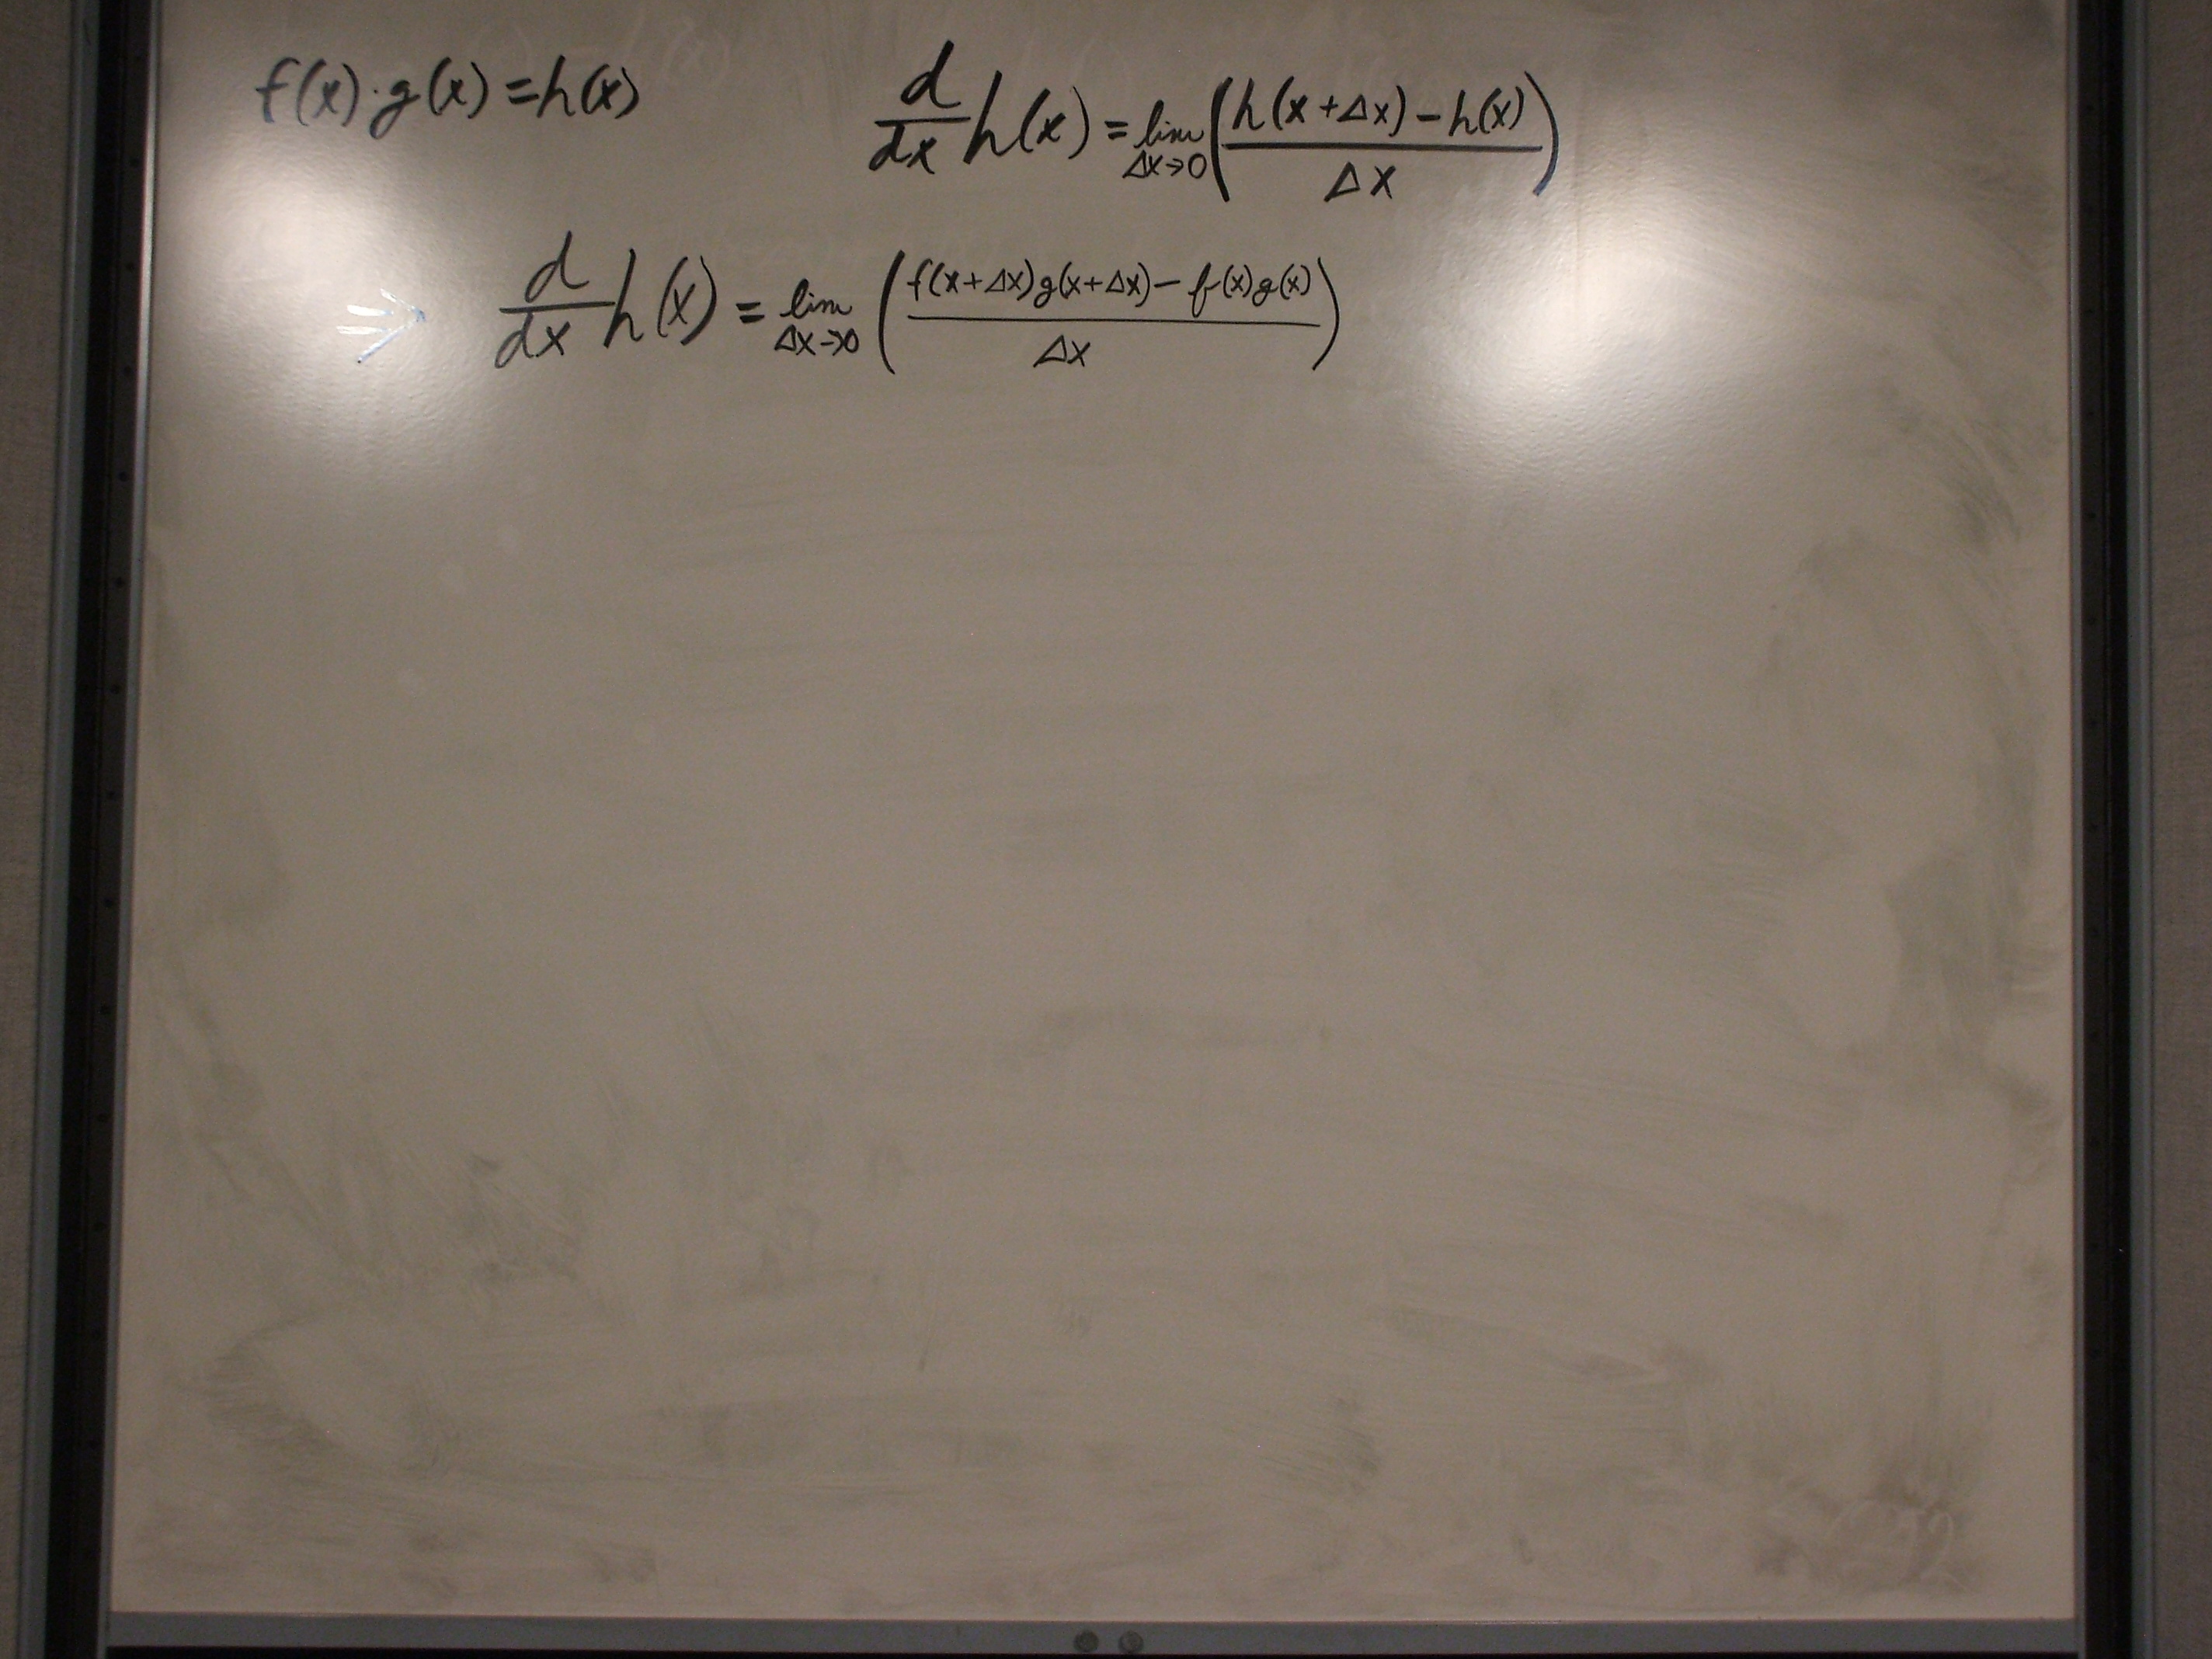 f(x)·g(x)=h(x)
d/dx h(x) = lim Δx→0 (h(x+Δx)-h(x) / Δx)
⇒ d/dx h(x) = lim Δx→0 (f(x+Δx)g(x+Δx)-f(x)g(x) / Δx)